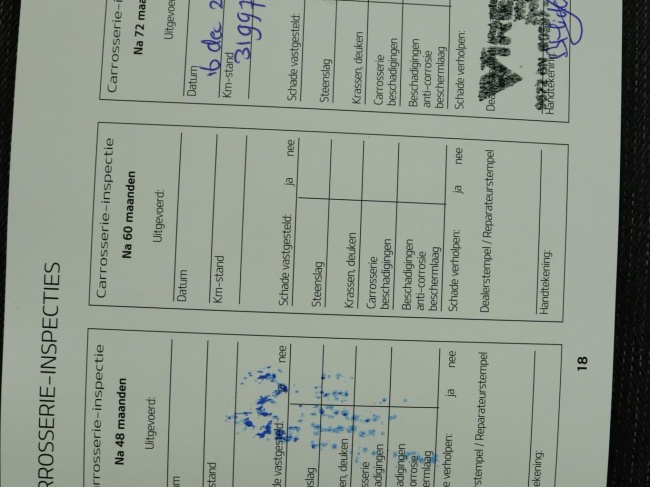 RROSSERIE-INSPECTIES
rrosserie-inspectie
Na 48 maanden
Uitgevoerd:
um
stand
de vastgesteld:
nee
slag
en, deuken
sserie
adigingen
adigingen
corrosie
ermlaag
e verholpen:
ja nee
stempel / Reparateurstempel
ekening:
Carrosserie-inspectie
Na 60 maanden
Uitgevoerd:
Datum
Km-stand
Schade vastgesteld: ja nee
Steenslag
Krassen, deuken
Carrosserie
beschadigingen
Beschadigingen
anti-corrosie
beschermlaag
Schade verholpen: ja nee
Dealerstempel / Reparateurstempel
Handtekening:
Carrosserie-i
Na 72 maa
Uitgevoe
Datum
16 dec 2
Km-stand
31997
Schade vastgesteld:
Steenslag
Krassen, deuken
Carrosserie
beschadigingen
Beschadigingen
anti-corrosie
beschermlaag
Schade verholpen:
Handtekening
18